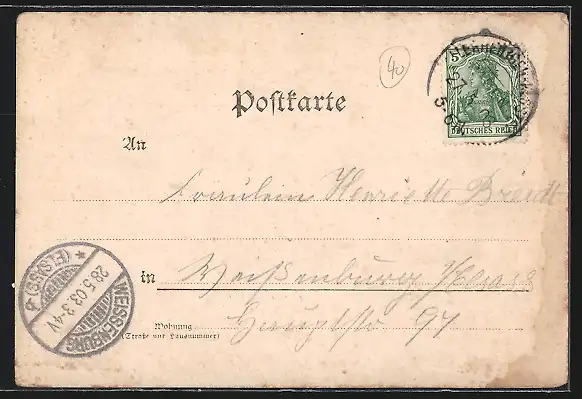 40
5
DEUTSCHES REICH
27
5-6
Postkarte
An
Fräulein Henriette Breidt
in Weißenburg Elsass
Wohnung
(Straße und Hausnummer)
Hauptstr 97
WEISSENBURG
* (ELSASS) a
28.5.03.3-4V